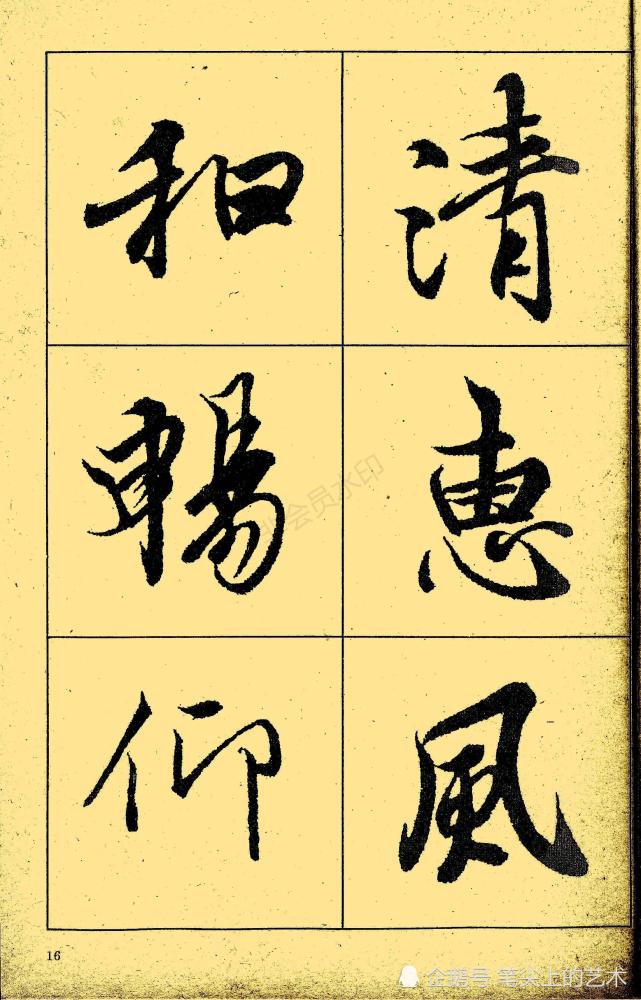 清惠風
和暢仰
会员水印
16
企鹅号 笔尖上的艺术